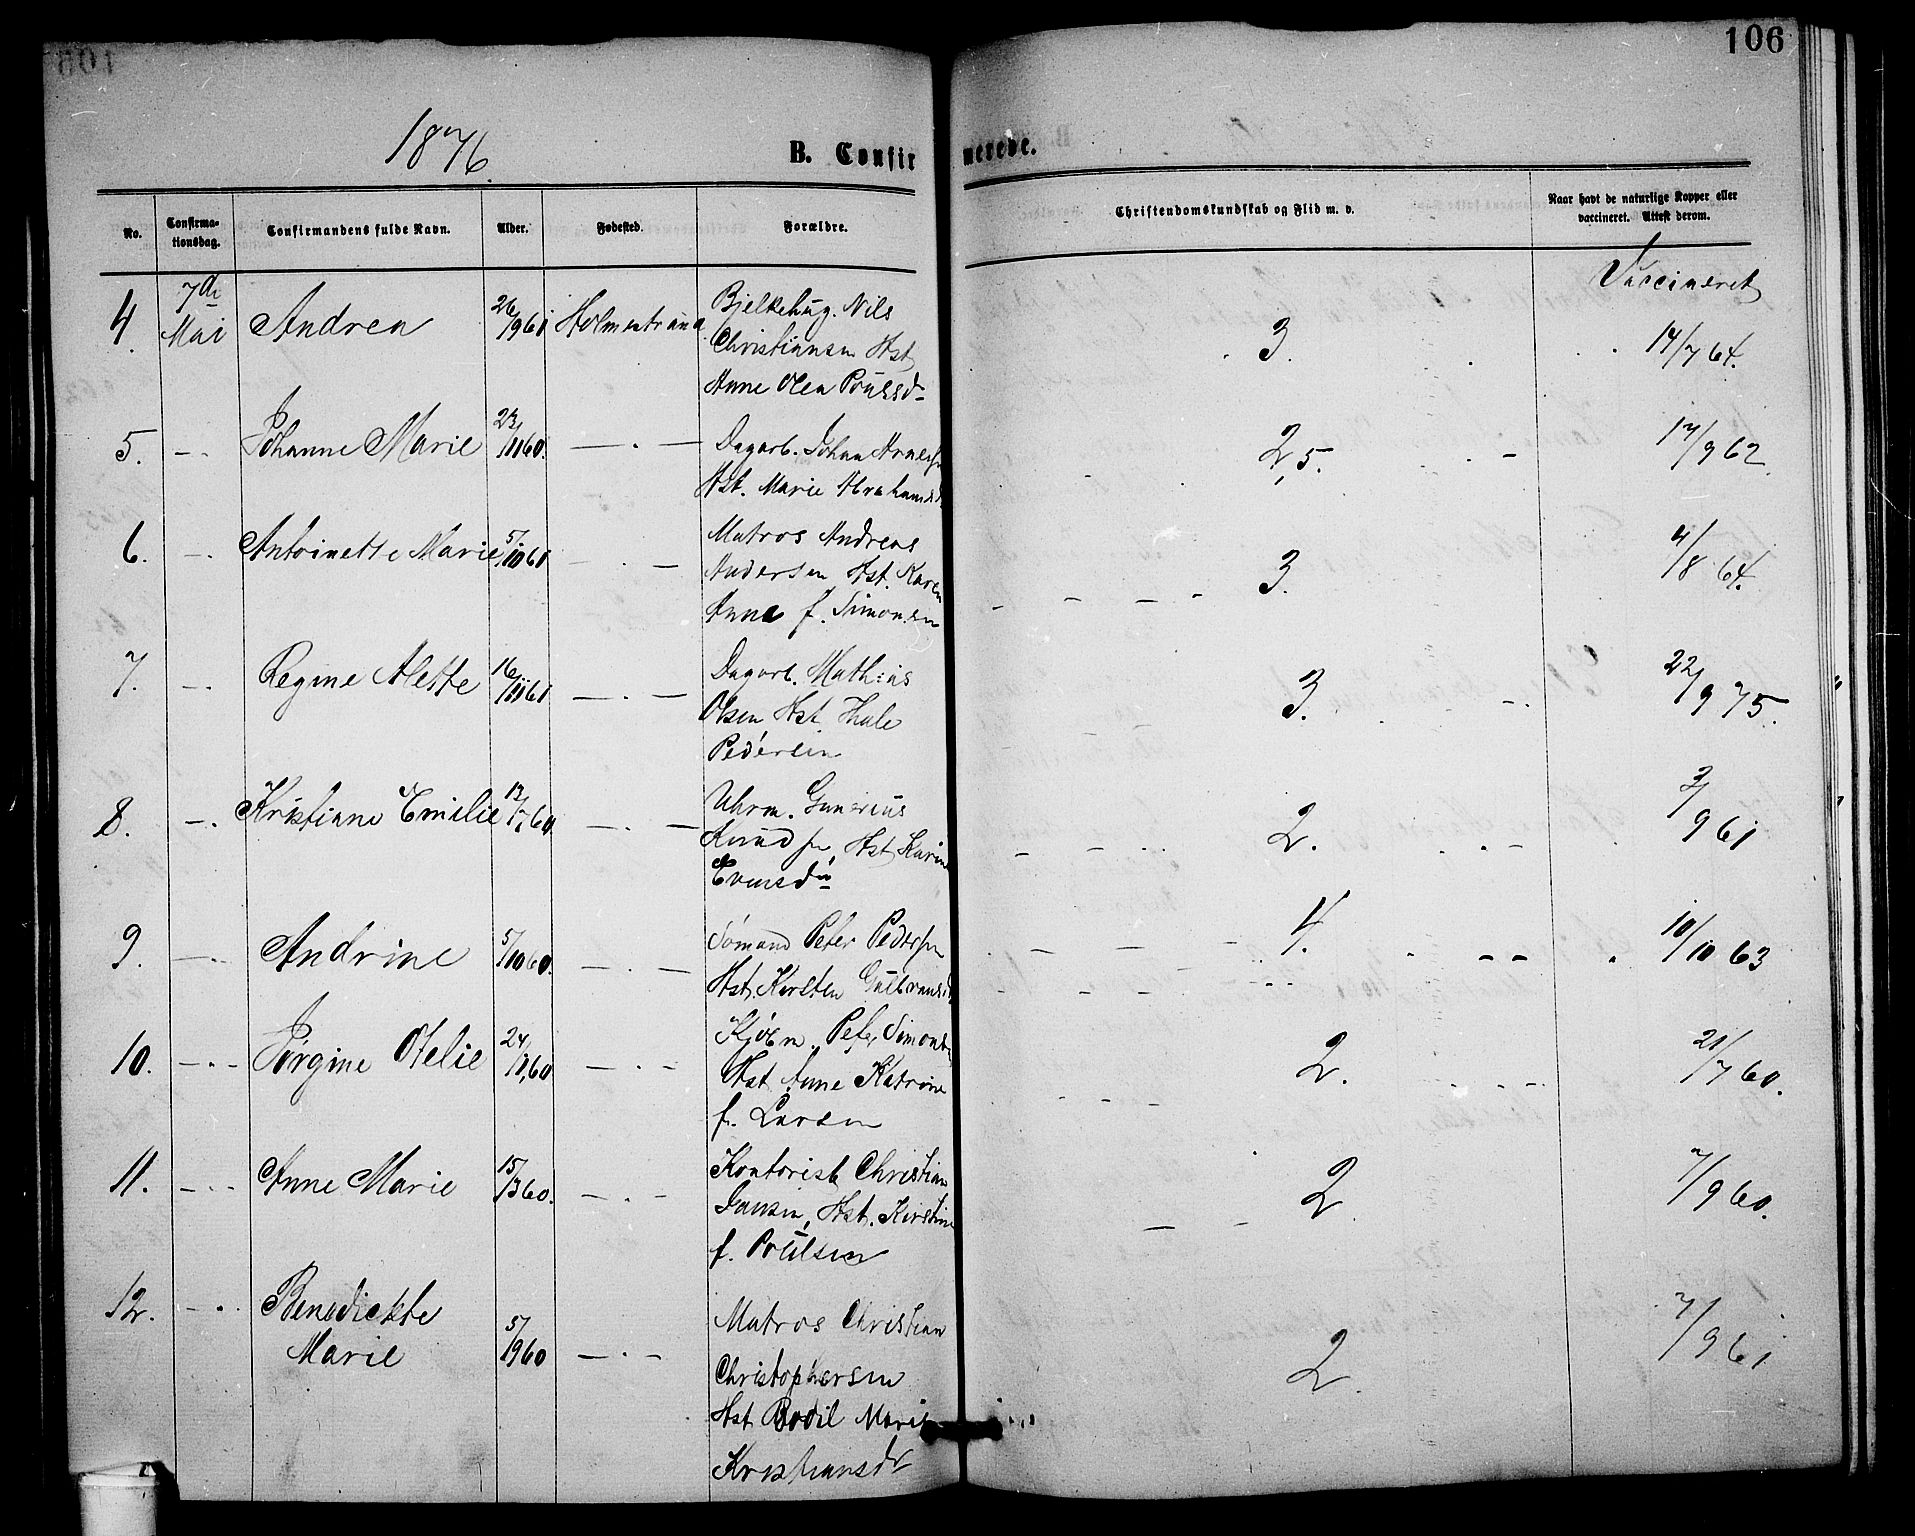 106
1876.
B. Confir
merede.
No.
Confirma-
tionsdag.
Confirmandens fulde Navn.
Alder.
Fødested.
Forældre.
Christendomskundskab og Flid m. v.
Naar havt de naturlige Kopper eller
vaccineret. Attest derom.
Vaccineret
4. 7de Mai Andrea 26/9 61 Holmestrand
Nils
Christiansen Hst
Anne Olea Poulsdr
3. 14/7 64.
5. — Johanne Marie 23/11 60. —.—
Dagarb. Johan
Hst. Marie Abrahamsd
2,5. 17/9 62.
6. —. Antoinette Marie 5/10 61 —.—
Matros Andreas
Andersen Hst. Karen
Anne f. Simonsen
3. 4/8 64.
7. —. Regine Alette 16/11 61 —.—
Dagarb. Mathias
Olsen Hst Thale
Pedersen
3. 22/9 75.
8. —. Kristiane Emilie 17/7 60. —.—
Uhrm. Gunerius
Knudsen, Hst Karine
Evensdr
2. 3/9 61
9. —. Andrine 5/10 60. —.—
Sømand Peter Pedersen
Hst. Kirsten Gulbransd
4. 10/10 63
10. —.— Jørgine Otelie 24/1 60 —.—
Kjøbm. Peter Simonsen
Hst Anne Katrine
f. Larsen
2. 21/7 60.
11. —.. Anne Marie 15/3 60. —.—
Kontorist Christian
Jansen, Hst. Kirstine
f. Poulsen
2. 7/9 60.
12. —. Benedickte
Marie 5/9 60 —.—
Matros Christian
Christophersen
Hst Bodil Marie
Kristiansdr
2. 7/9 61